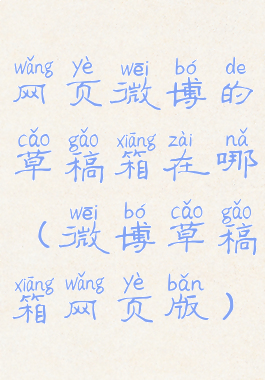 wǎng yè wēi bó de
网页微博的
cǎo gǎo xiāng zài nǎ
草稿箱在哪
wēi bó cǎo gǎo
（微博草稿
xiāng wǎng yè bǎn
箱网页版）